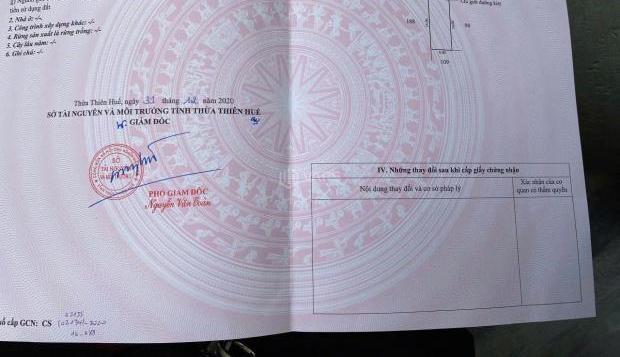 tiền sử dụng đất
2. Nhà ở: -/-
3. Công trình xây dựng khác: -/-
4. Rừng sản xuất là rừng trồng: -/-
5. Cây lâu năm: -/-
6. Ghi chú: -/-
Chỉ giới đường kiệt
188
98
109
Thừa Thiên Huế, ngày 31 tháng 12 năm 2020
SỞ TÀI NGUYÊN VÀ MÔI TRƯỜNG TỈNH THỪA THIÊN HUẾ
GIÁM ĐỐC
SỞ
TÀI NGUYÊN
PHÓ GIÁM ĐỐC
Nguyễn Văn
IV. Những thay đổi sau khi cấp giấy chứng nhận
Nội dung thay đổi và cơ sở pháp lý
Xác nhận của cơ
quan có thẩm quyền
số cấp GCN: CS